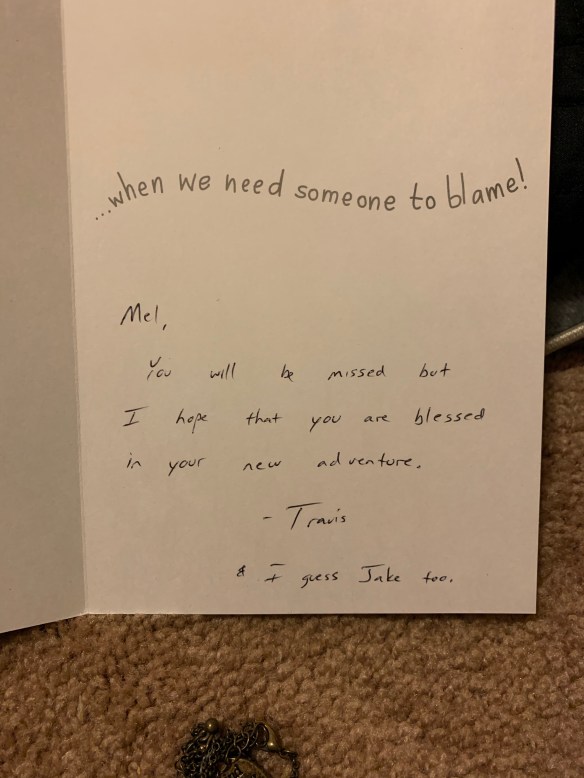 ...when we need someone to blame!
Mel,
You will be missed but
I hope that you are blessed
in your new adventure.
- Travis
& I guess Jake too.